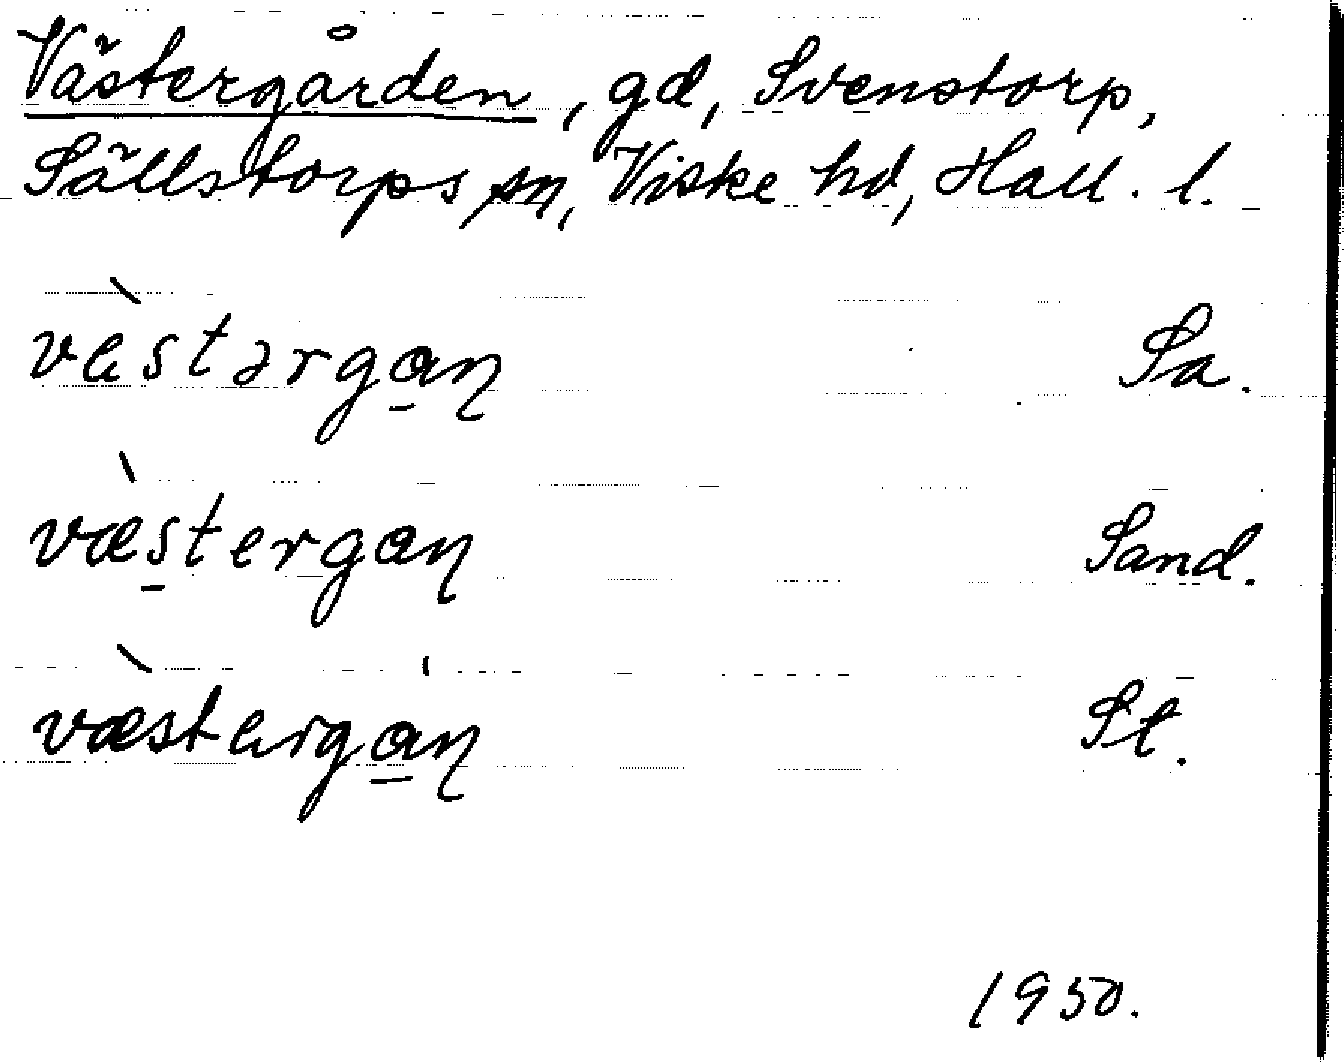 Västergården, gd, Svenstorp,
Sällstorps sn, Viske hd, Hall. l.
vèstərga̱ɳ Sa.
væ̀s̱tergaɳ Sand.
væ̀sterga̱ɳ St.
1950.